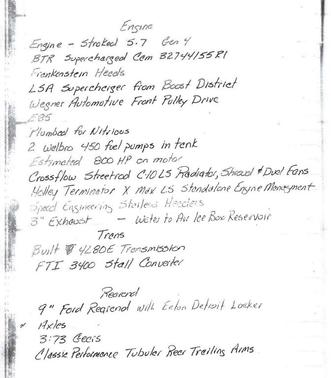 Engine
Engine - Stroked 5.7 Gen 4
BTR Supercharged Cam 32744155R1
Frankenstein Heads
LSA Supercharger from Boost District
Wegner Automotive Front Pulley Drive
E85
Plumbed for Nitrious
2 Welbro 450 fuel pumps in tank
Estimated 800 HP on motor
Crossflow Steetrod C-10 LS Radiator, Shroud & Duel Fans
Holley Terminator X Max LS Standalone Engine Managment
Speed Engineering Stainless Headers
3" Exhaust - Water to Air Ice Box Reservoir
Trans
Built 4L80E Transmission
FTI 3400 Stall Converter
Rearend
9" Ford Rearend with Eaton Detroit Locker
Axles
3:73 Gears
Classic Performance Tubular Rear Trailing Arms